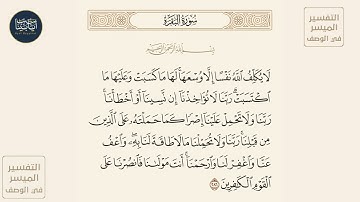 سُورَةُ البَقَرَةِ
بِسْمِ اللَّهِ الرَّحْمَٰنِ الرَّحِيمِ
لَا يُكَلِّفُ اللَّهُ نَفْسًا إِلَّا وُسْعَهَا لَهَا مَا كَسَبَتْ وَعَلَيْهَا مَا
اكْتَسَبَتْ رَبَّنَا لَا تُؤَاخِذْنَا إِن نَّسِينَا أَوْ أَخْطَأْنَا
رَبَّنَا وَلَا تَحْمِلْ عَلَيْنَا إِصْرًا كَمَا حَمَلْتَهُ عَلَى الَّذِينَ
مِن قَبْلِنَا رَبَّنَا وَلَا تُحَمِّلْنَا مَا لَا طَاقَةَ لَنَا بِهِ وَاعْفُ
عَنَّا وَاغْفِرْ لَنَا وَارْحَمْنَا أَنتَ مَوْلَانَا فَانصُرْنَا عَلَى
الْقَوْمِ الْكَافِرِينَ
التفسير
الميسر
في الوصف
التفسير
الميسر
في الوصف